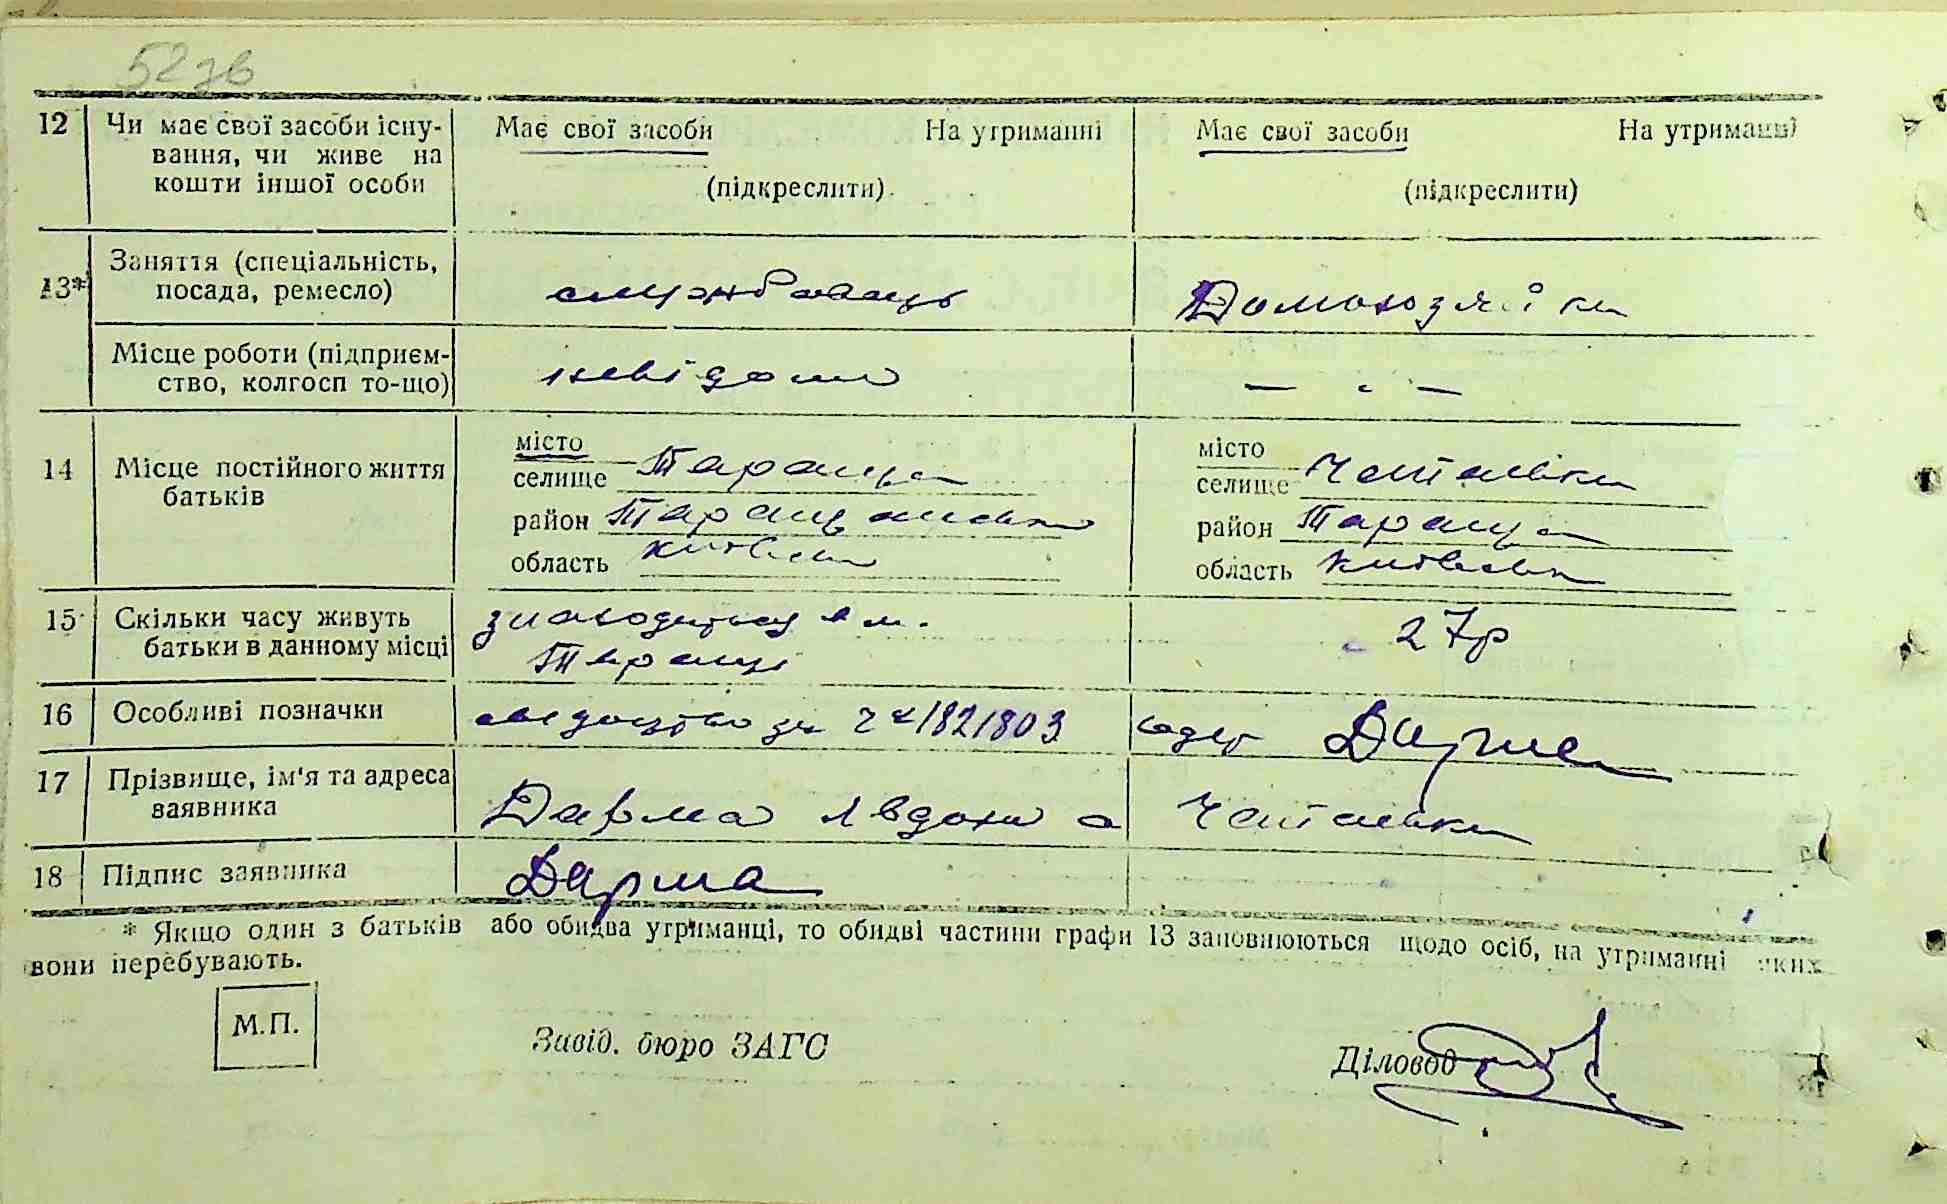 52 зв
12 Чи має свої засоби існу- Має свої засоби На утриманні Має свої засоби На утриманні
вання, чи живе на
кошти іншої особи (підкреслити). (підкреслити)
13* Заняття (спеціальність,
посада, ремесло) службовець Домохозяйка
Місце роботи (підприєм-
ство, колгосп то-що) невідомо — „ —
14 Місце постійного життя
батьків
місто
селище Тараща
район Таращанськ
область Київськ
місто
селище
район Тараща
область Київськ
15 Скільки часу живуть
батьки в данному місці
знаходиться в м.
Таращі
27р
16 Особливі позначки свідоцтво за 821803 Дарма
17 Прізвище, ім'я та адреса
заявника
Дарма Явдоха
18 Підпис заявника Дарма
* Якщо один з батьків або обидва утриманці, то обидві частини графи 13 заповнюються щодо осіб, на утриманні яких
вони перебувають.
М.П.
Завід. бюро ЗАГС
Діловод